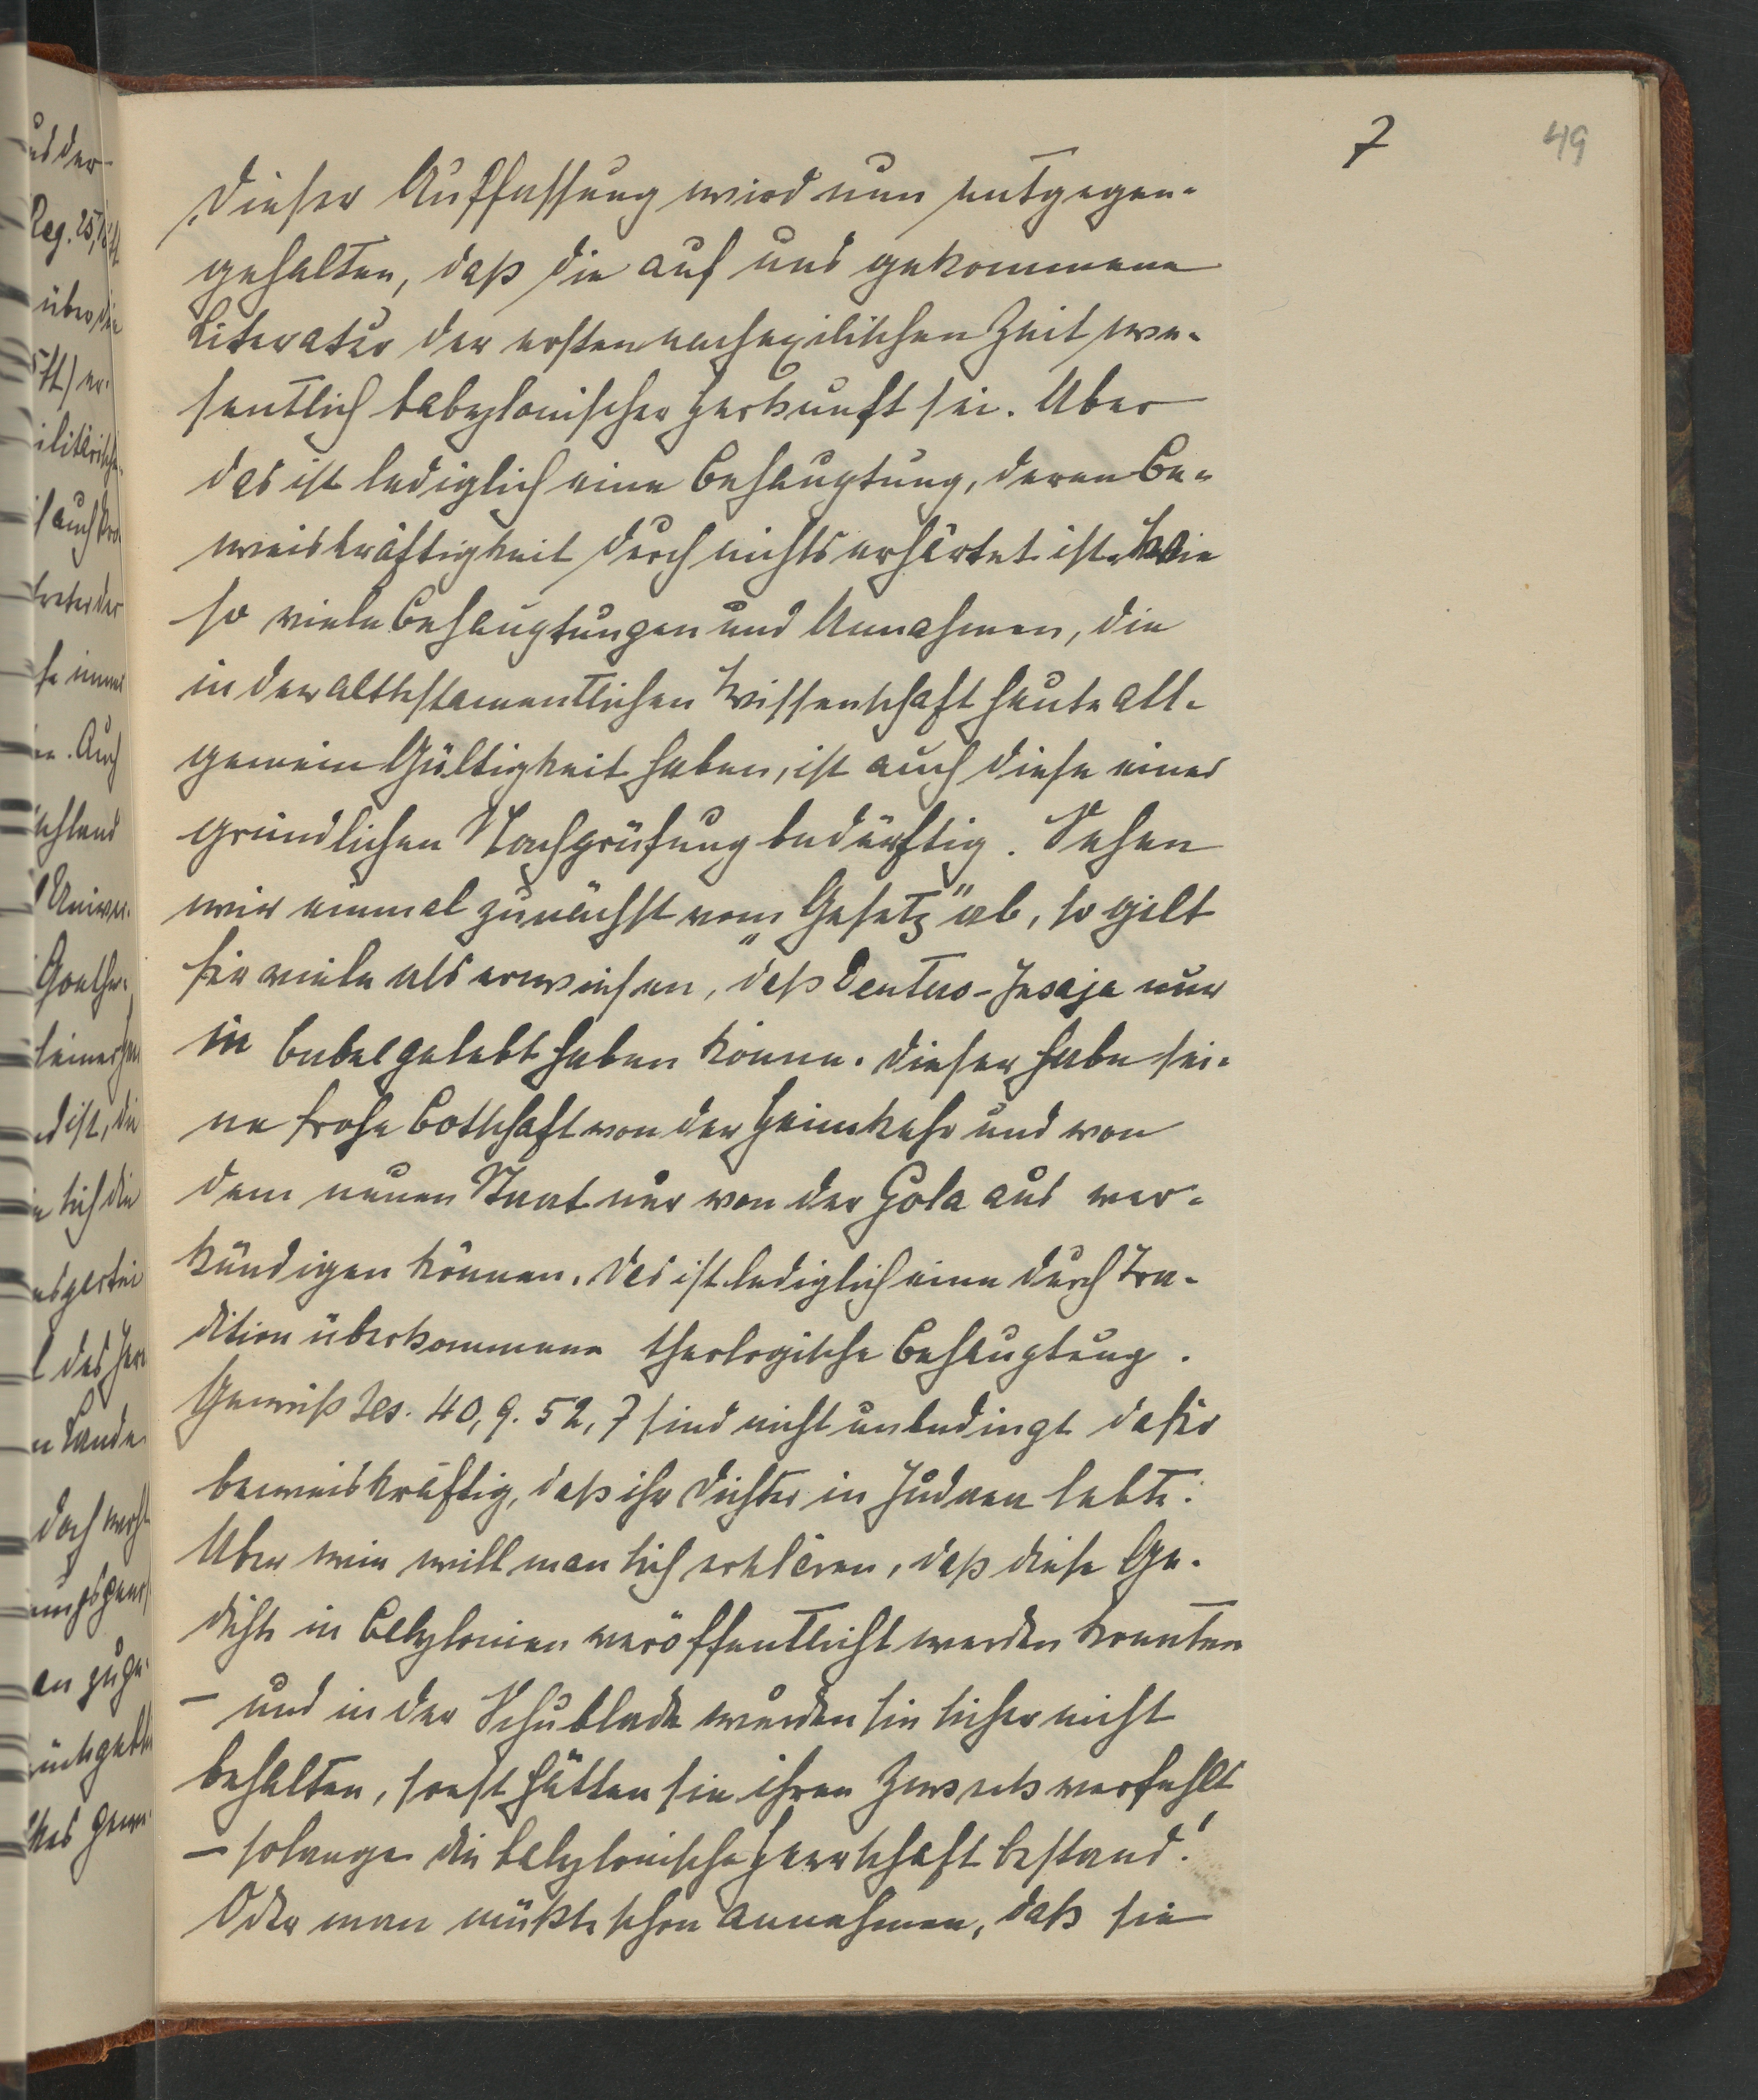 7
49
Dieser Auffassung wird nun entgegen-
gehalten, daß die auf uns gekommene
Literatur der ersten nachexilischen Zeit we-
sentlich babylonischer Herkunft sei. Aber
das ist lediglich eine Behauptung, deren Be-
weiskräftigkeit durch nichts erhärtet ist. Wie
so viele Behauptungen und Annahmen, die
in der alttestamentlichen Wissenschaft heute all-
gemein Gültigkeit haben, ist auch diese einer
gründlichen Nachprüfung bedürftig. Sehen
wir einmal zunächst vom „Gesetz" ab, so gilt
für viele als erwiesen, daß Deutero-Jesaja nur
in Babel gelebt haben könne. Dieser habe sei-
ne frohe Botschaft von der Heimkehr und von
dem neuen Staat nur von der Gola aus ver-
kündigen können. Das ist lediglich eine durch Tra-
dition überkommene theologische Behauptung.
Gewiß Jes. 40,9. 52,7 sind nicht unbedingt dafür
beweiskräftig, daß ihr Dichter in Judäa lebte.
Aber wie will man sich erklären, daß diese Ge-
dichte in Babylonien veröffentlicht werden konnten
– und in der Schublade wurden sie sicher nicht
behalten, sonst hätten sie ihren Zweck verfehlt
– solange die babylonische Herrschaft bestand!
Oder man müßte schon annehmen, daß sie